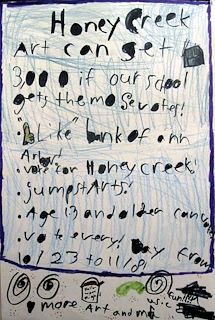 Honey Creek
Art can get
3,000 if our school
gets the most votes!
"Like" bank of ann
Arbor!
vote for Honey creek!
jumpstArts!
Age 13 and older can vote
vote every! Day from
10/23 to 11/8!
more Art and music